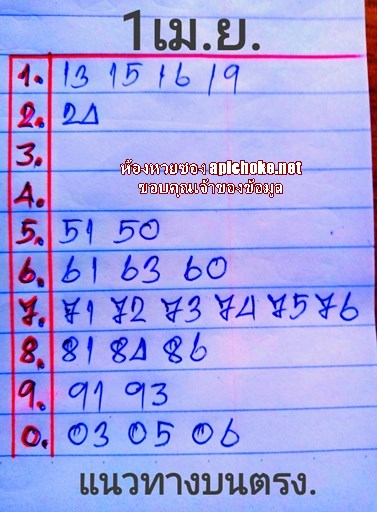 1เม.ย.
1. 13 15 16 19
2. 24
3.
ห้องหวยซอง apichoke.net
4.
ขอบคุณเจ้าของข้อมูล
5. 51 50
6. 61 63 60
7. 71 72 73 74 75 76
8. 81 84 86
9. 91 93
0. 03 05 06
แนวทางบนตรง.